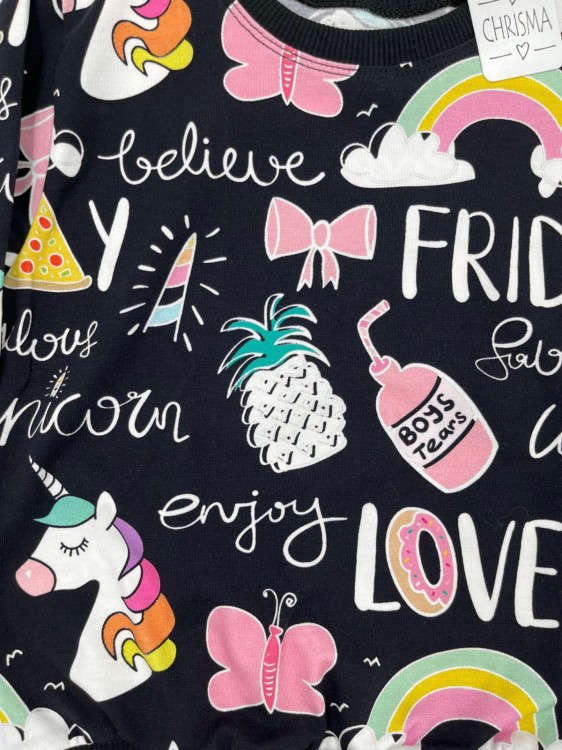 CHRISMA
believe
AY
FRID
unicorn
BOYS
Tears
enjoy
LOVE